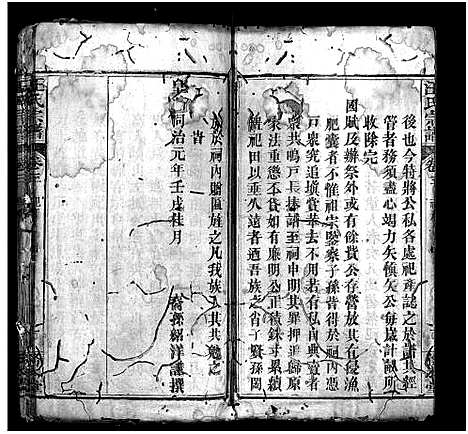 汪氏宗譜
後也今特將公私各處祀產誌之於譜其經
管者務須盡心竭力矢慎矢公每歲計祠所
收除完
國賦及辦祭外或有餘費公存營放其有侵漁
肥囊者不惟祖宗鑒察子孫皆得於祠內憑
戶眾究追填賞革去不用若有私自典賣者
眾共鳴戶長捧譜至祠申明其罪押主歸原
家法重懲不貸如有廉明公正積銖寸累續
新祀田以垂久遠者迺吾族之肖子賢孫閤
族於祠內贈匾旌之凡我族人其共勉之
皆
同治元年壬戌桂月
裔孫紹洋謹撰
汪氏宗譜
卷三